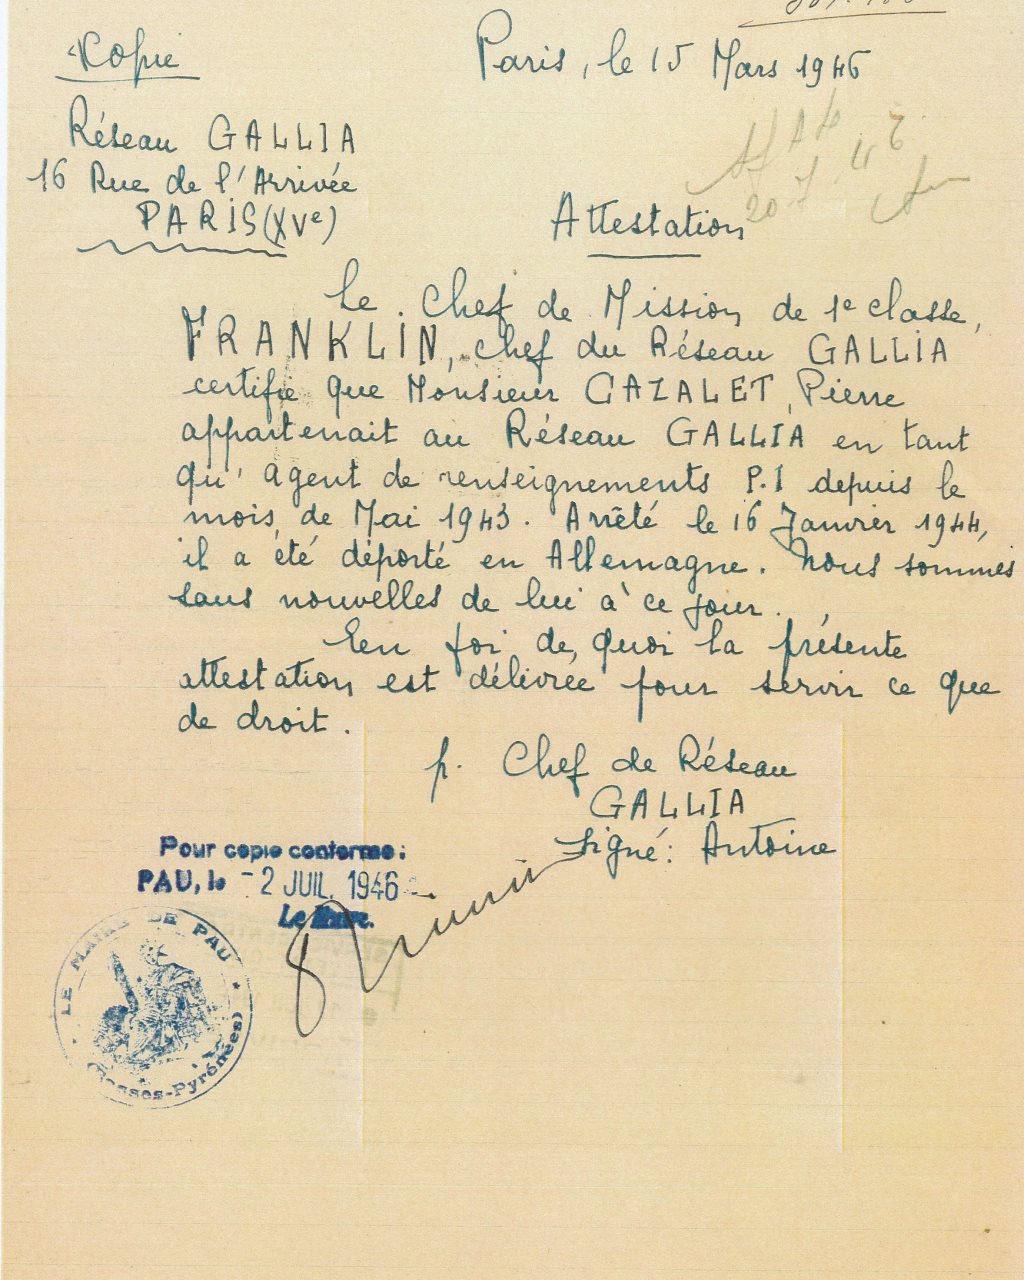 Copie
Paris, le 15 Mars 1946
Réseau GALLIA
16 Rue de l'Arrivée
PARIS (XVe)
Attestation
Le Chef de Mission de 1e classe,
FRANKLIN, chef du Réseau GALLIA
certifie que Monsieur CAZALET, Pierre
appartenait au Réseau GALLIA en tant
qu'agent de renseignements P.1 depuis le
mois de Mai 1943. Arrêté le 16 Janvier 1944,
il a été déporté en Allemagne. Nous sommes
sans nouvelles de lui à ce jour.
En foi de quoi la présente
attestation est délivrée pour servir ce que
de droit.
p. Chef de Réseau
GALLIA
signé: Antoine
Pour copie conforme:
PAU, le -2 JUIL. 1946
Le Maire.
LE MAIRE DE PAU
(Basses-Pyrénées)